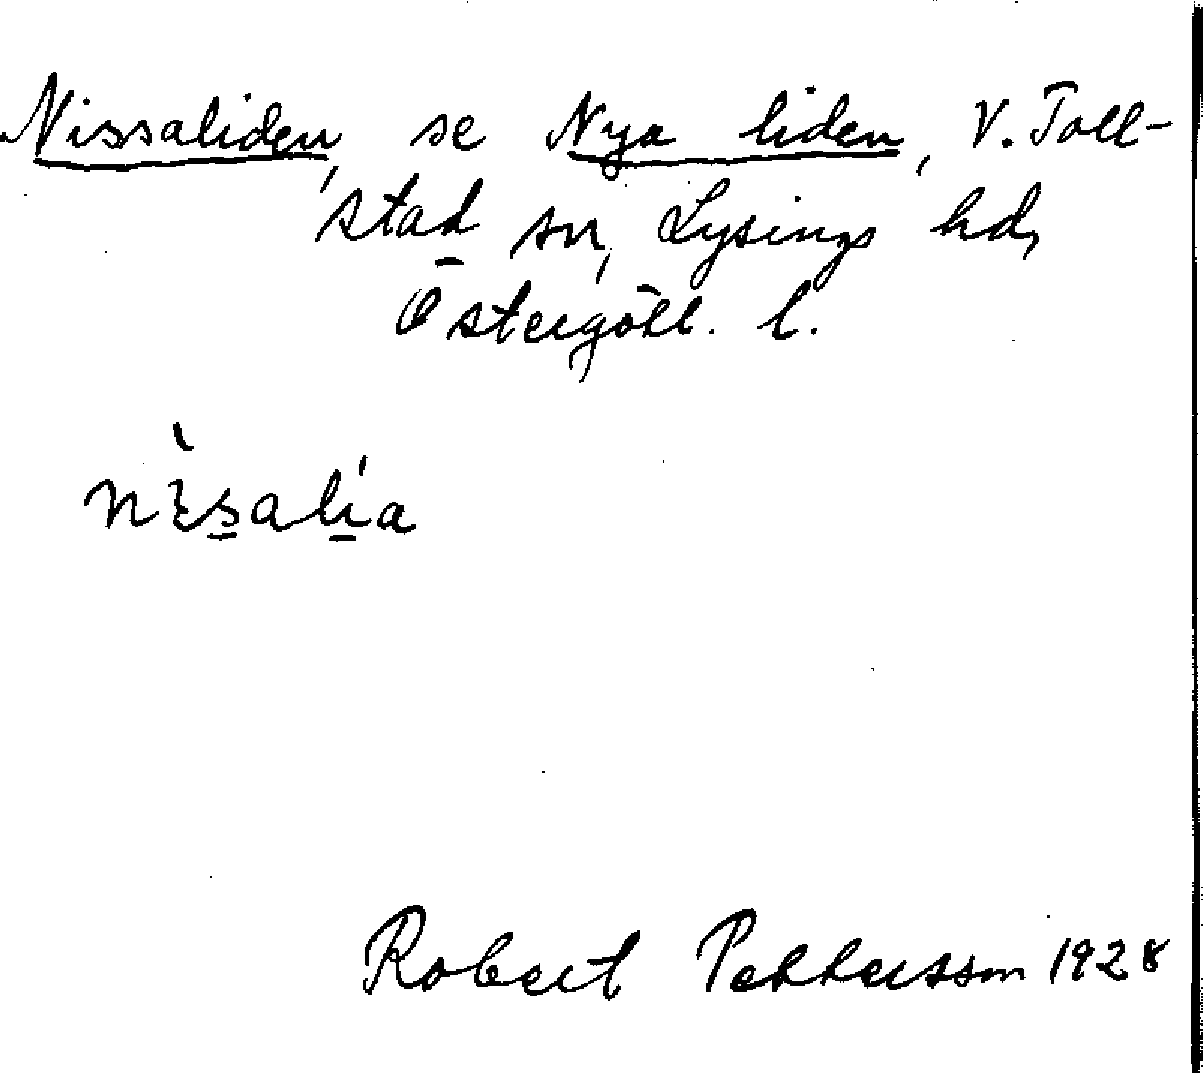 Nissaliden, se Nya liden, V. Toll-
stad sn, Lysings hd,
Östergötl. l.
nìsalía
Robert Pettersson 1928